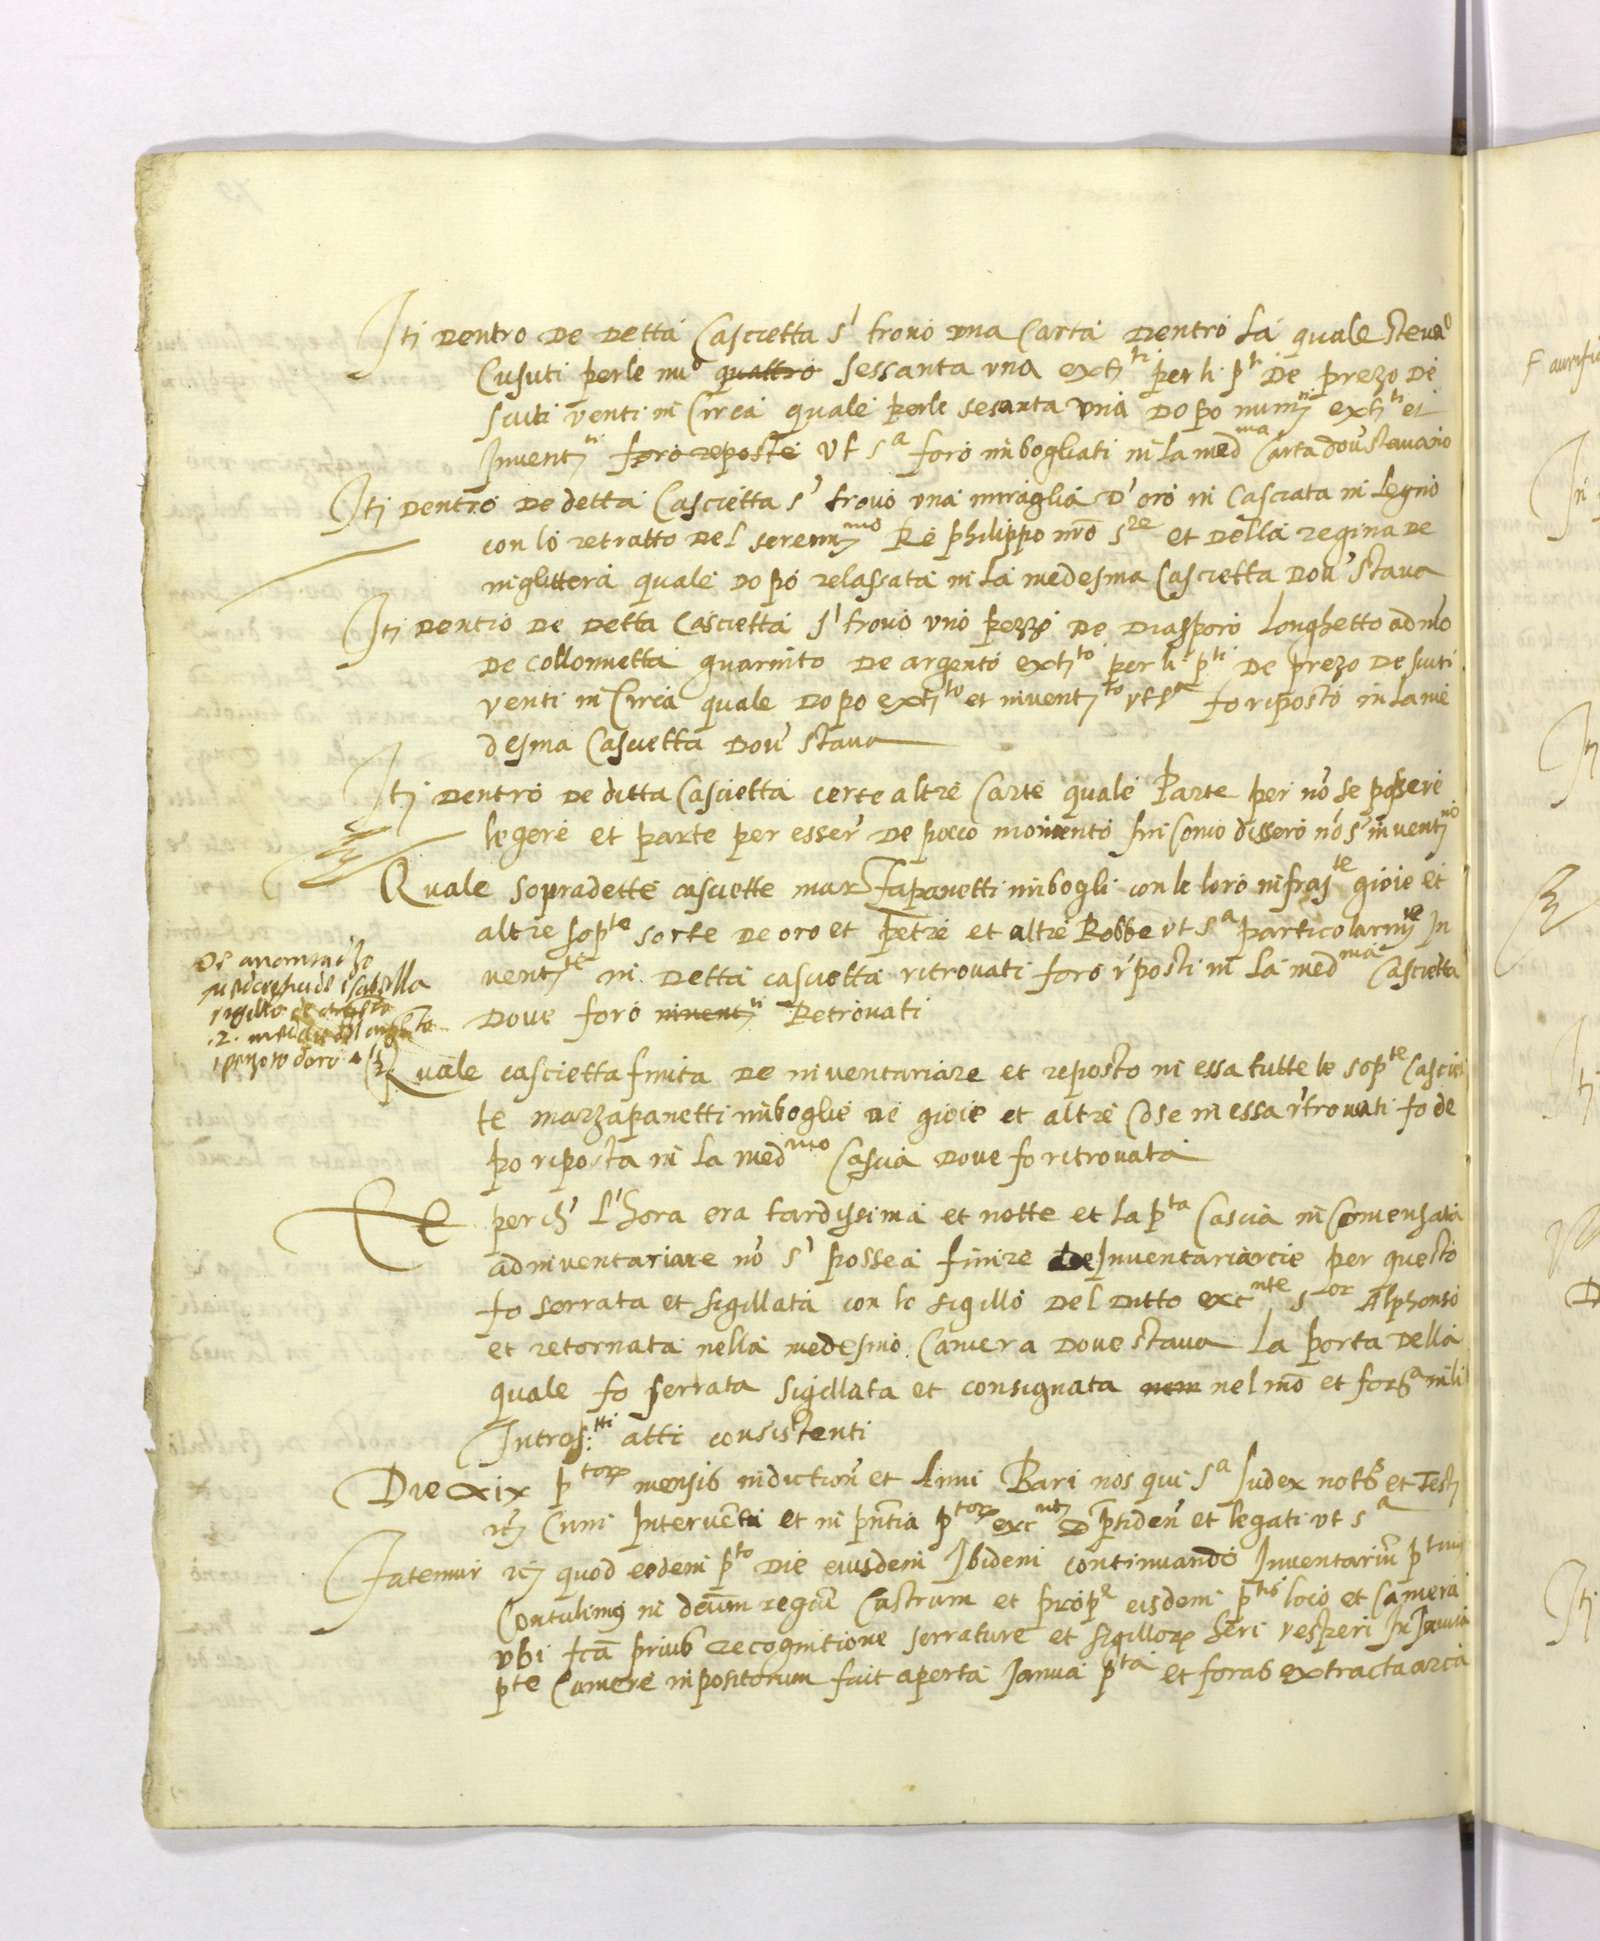 Itj dentro de detta cascietta s' trovò una carta dentro la quale steva°
cusuti perle nu° quattro sessanta una extj^ti per li p^ti de prezo de
scuti venti in circa quale perle sesanta una dopo numj^ti extj^ti et
Inventj^ti foro reposte ut s^a foro imbogliati in la med^ma carta dov' stavano
Itj dentro de detta cascietta s' trovò una miraglia d'oro in casciata in legno
con lo retratto del serenj^mo Re philippo nro s^re et della regina de
inglittera quale dopo relassata in la medesma cascietta dov' stava
Itj dentro de detta cascietta s' trovò uno pezzo de diasporo longhetto ad mo
de collonnetta guarnito de argento extj^to per li p^ti de prezo de scuti
venti in circa quale dopo extj^to et inventj^to ut s^a fo riposto in la me
desma cascietta dov' stava
Itj dentro de ditta cascietta certe altre carte quale Parte per no' se possere
legere et parte per esser' de poco momento dissero no' s' inventj^no
Quale sopradette casciette marzapanetti imbogli con le loro infras^te gioie et
altre sop^te sorte de oro et petre et altre Robbe ut s^a particolarmj^te In
ventj^te in detta cascietta ritrovati foro r'posti in la med^ma cascietta
dove foro inventj^ti Retrovati
Quale cascietta finita de inventariare et reposto in essa tutte le sop^te casciet
te marzapanetti imboglie de gioie et altre cose in essa r'trovati fo de
po riposta in la med^mo cascia dove fo ritrovata
Et perch' l'hora era tardissima et notte et la p^ta cascia incomenzata
ad inventariare no' s' possea finire de Inventariarcie per questo
fo serrata et sigillata con lo sigillo del ditto exc^nte s^or Alphonso
et retornata nella medesmo camera dove stava la porta della
quale fo serrata sigillata et consignata nem nel mo et for^a in li
Intras:^tti atti consistenti
Die xix p^tor mensis indiction' et Bari nos qui s^a Judex not^s et Testj
Cum Interventu et in pntia p^tor exc^ntj D pridem' et legati ut s^a
Fatemur quod eodem p^to die eiusdem Ibidem continuando Inventariu' p^tum
Contulimus in dictum regiu' castrum et prop^e eisdem p^tis loco et camera
ubi fca prius recognitione serrature et sigillor heri vesperi In Janua
p^te Camere inpositorum fuit aperta Janua p^ta et foras extracta arca
de isabella
sigillo
.2.
d'oro